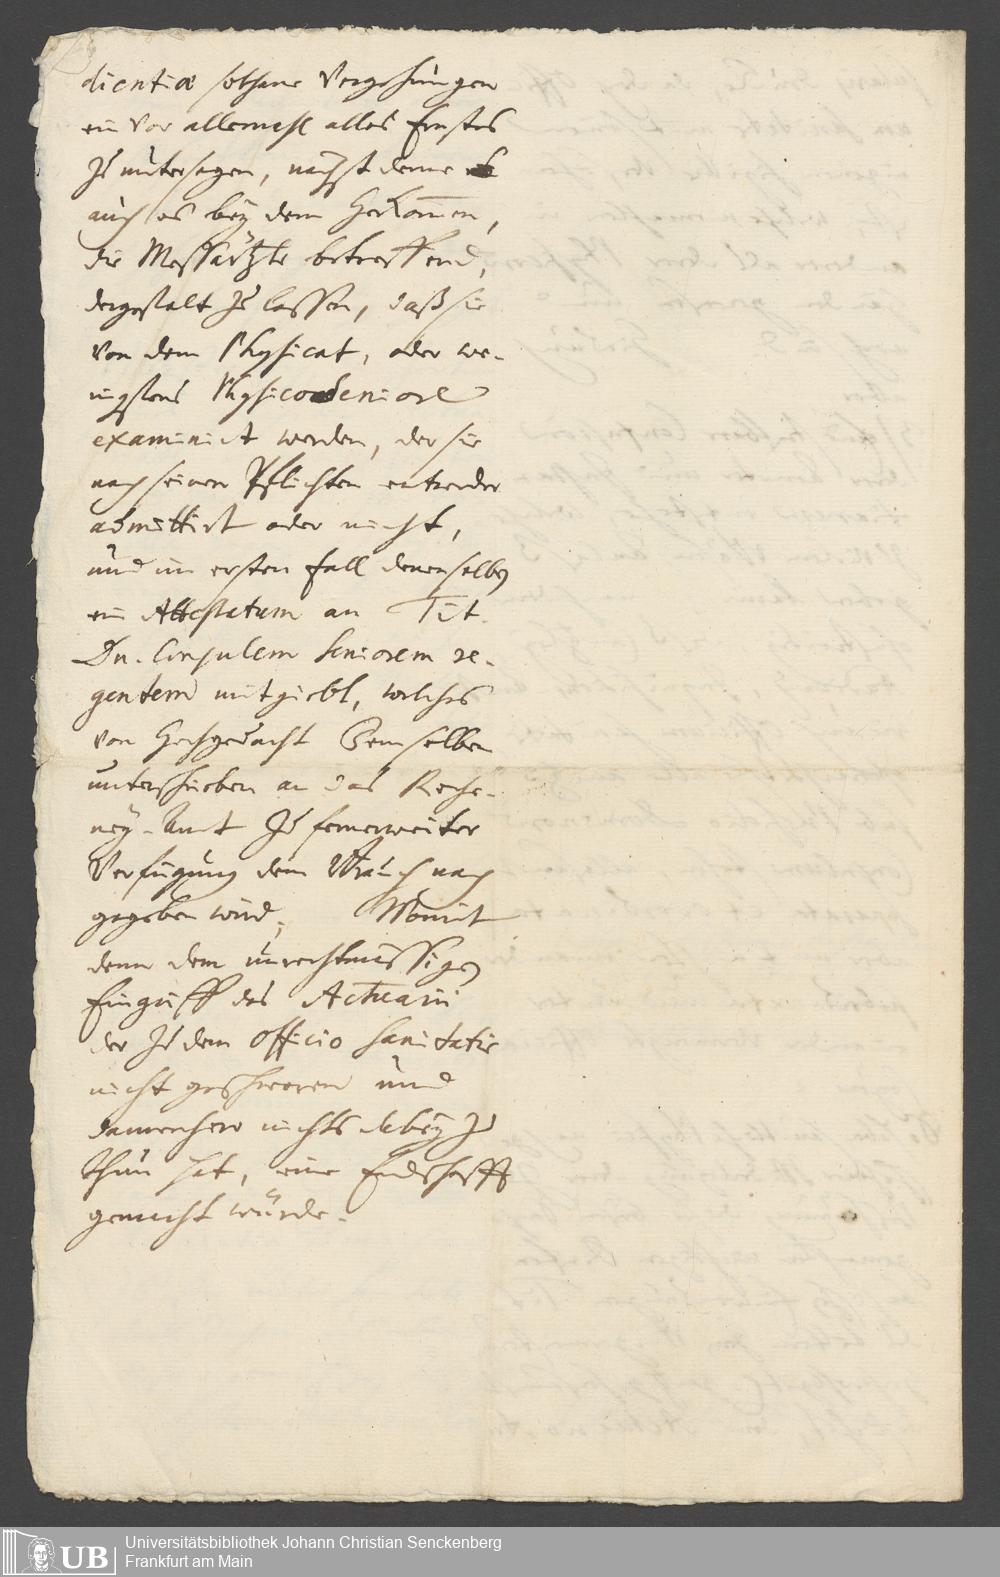 dientiæ sothane Vergehungen
ein vor allemahl alles Ernstes
zu untersagen, nechst deme
auch es bey dem Herkom̄en,
die Messärtzte betreffend,
dergestalt zu lassen, daß sie
von dem Physicat, oder we-
nigstens Physico Seniore
examinirt werden, der sie
nach seinen Pflichten entweder
admittirt oder nicht,
und im ersten Fall denenselben
ein Attestatum an Tit.
Dn. Consulem Seniorem re-
gentem mitgiebt, welches
von Hochgedacht Demselben
unterschrieben an das Reche-
ney-Amt zu fernerweiter
Verfügung dem Brauch nach
gegeben wird; Womit
denn dem unrechtmässigen
Eingriff des Actuarii
der zu dem Officio Sanitatis
nicht geschworen und
dannenhero nichts dabey zu
thun hat, eine Endschafft
gemacht würde.
Universitätsbibliothek Johann Christian Senckenberg
Frankfurt am Main
UB